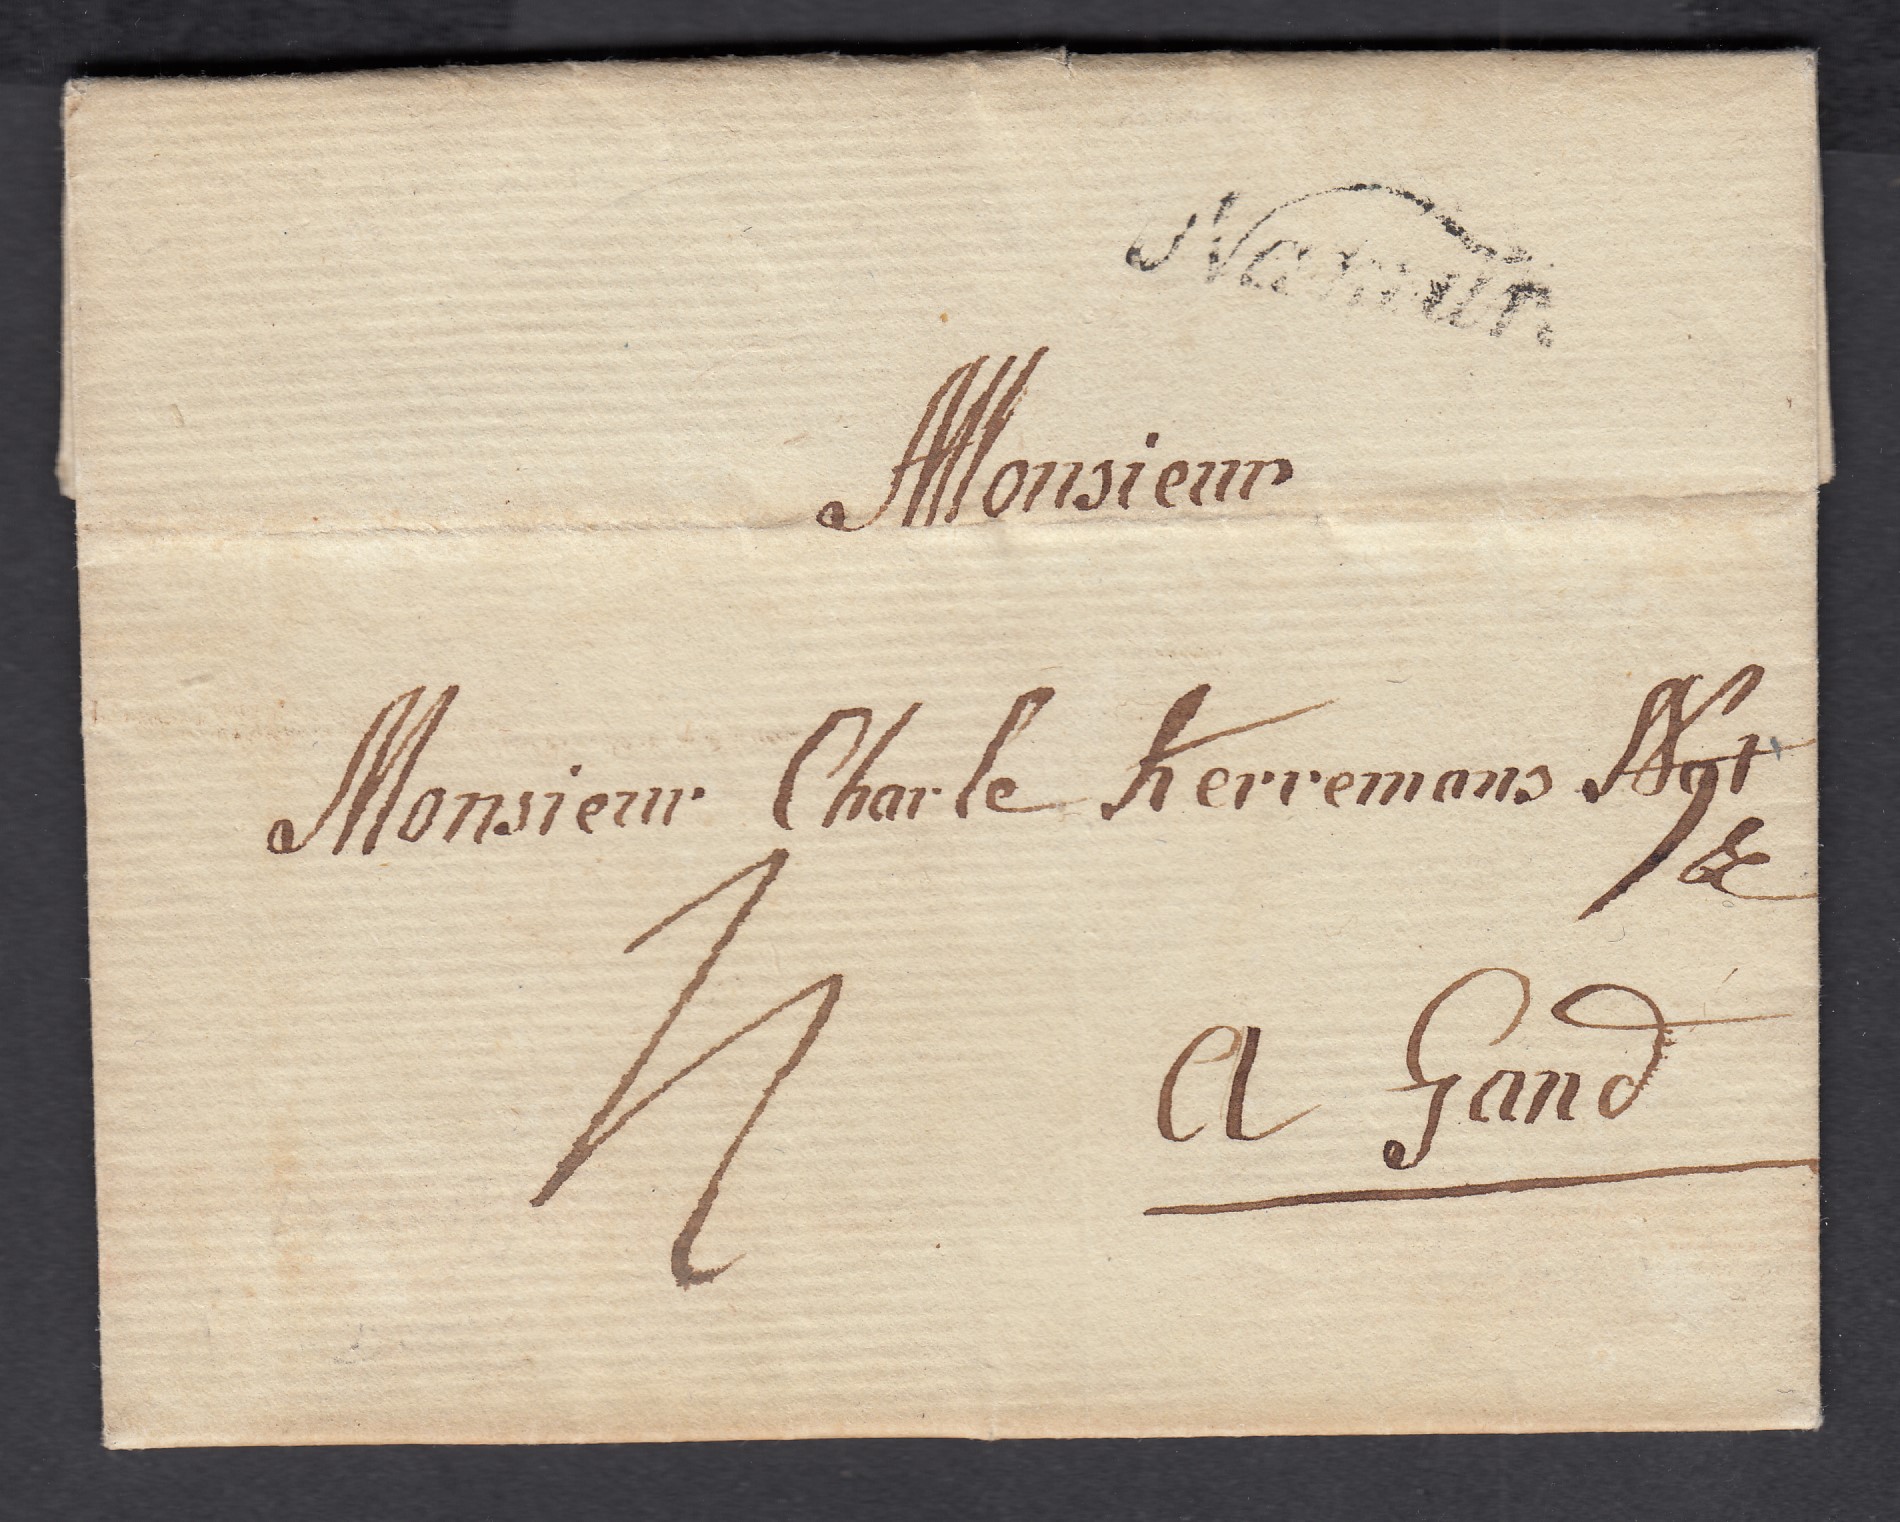 Namur.
Monsieur
Monsieur Charle Kerremans Ngt
&c
A Gand